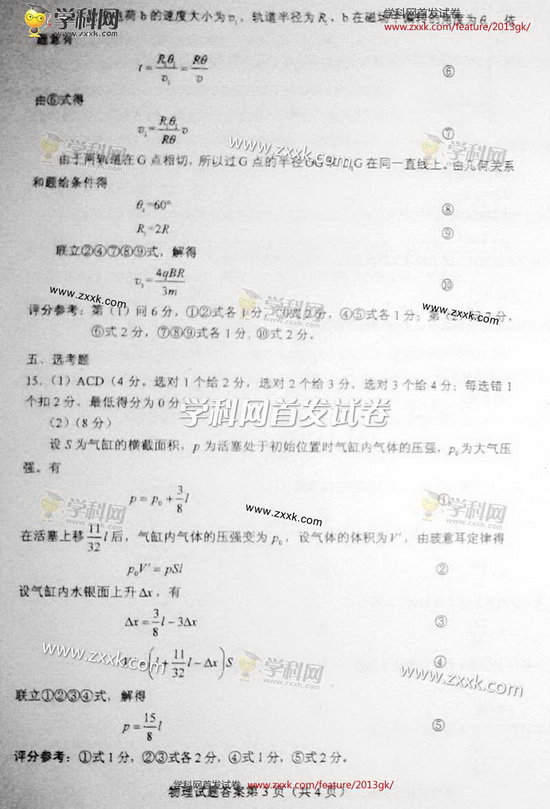 学科网首发试卷
www.zxxk.com/feature/2013gk/
学科网
荷b的速度大小为v₁，轨道半径为R₁，b在磁场中偏转的角度为θ₁，依
题意有
t = R₁θ₁/v₁ = Rθ/v ⑥
由⑥式得
v₁ = R₁θ₁/Rθ v ⑦
www.zxxk.com
由于两轨道在G点相切，所以过G点的半径OG和O₁G在同一直线上。由几何关系
和题给条件得
θ₁=60° ⑧
R₁=2R ⑨
联立②④⑦⑧⑨式，解得
v₁ = 4qBR/3m ⑩
www.zxxk.com
评分参考：第（1）问6分，①②式各1分，③式2分，④⑤式各1分；第（2）问7分，
⑥式2分，⑦⑧⑨各1分，⑩式2分。
www.zxxk.com
五、选考题
15.（1）ACD（4分，选对1个给2分，选对2个给3分，选对3个给4分；每选错1
个扣2分，最低得分为0分）
学科网首发试卷
（2）（8分）
设S为气缸的横截面积，p为活塞处于初始位置时气缸内气体的压强，p₀为大气压
强。有
学科网
p = p₀ + 3/8 l ①
学科网
www.zxxk.com
在活塞上移 11/32 l 后，气缸内气体的压强变为p₀，设气体的体积为V′，由玻意耳定律得
p₀V′ = pSl ②
设气缸内水银面上升Δx，有
Δx = 3/8 l − 3Δx ③
V′ = (l + 11/32 l − Δx) S
www.zxxk.com
学科网
www.zxxk.com
联立①②③④式，解得
p = 15/8 l ⑤
评分参考：①式1分，②③式各2分，④式1分，⑤式2分。
学科网首发试卷
www.zxxk.com/feature/2013gk/
物理试题答案第3页（共4页）